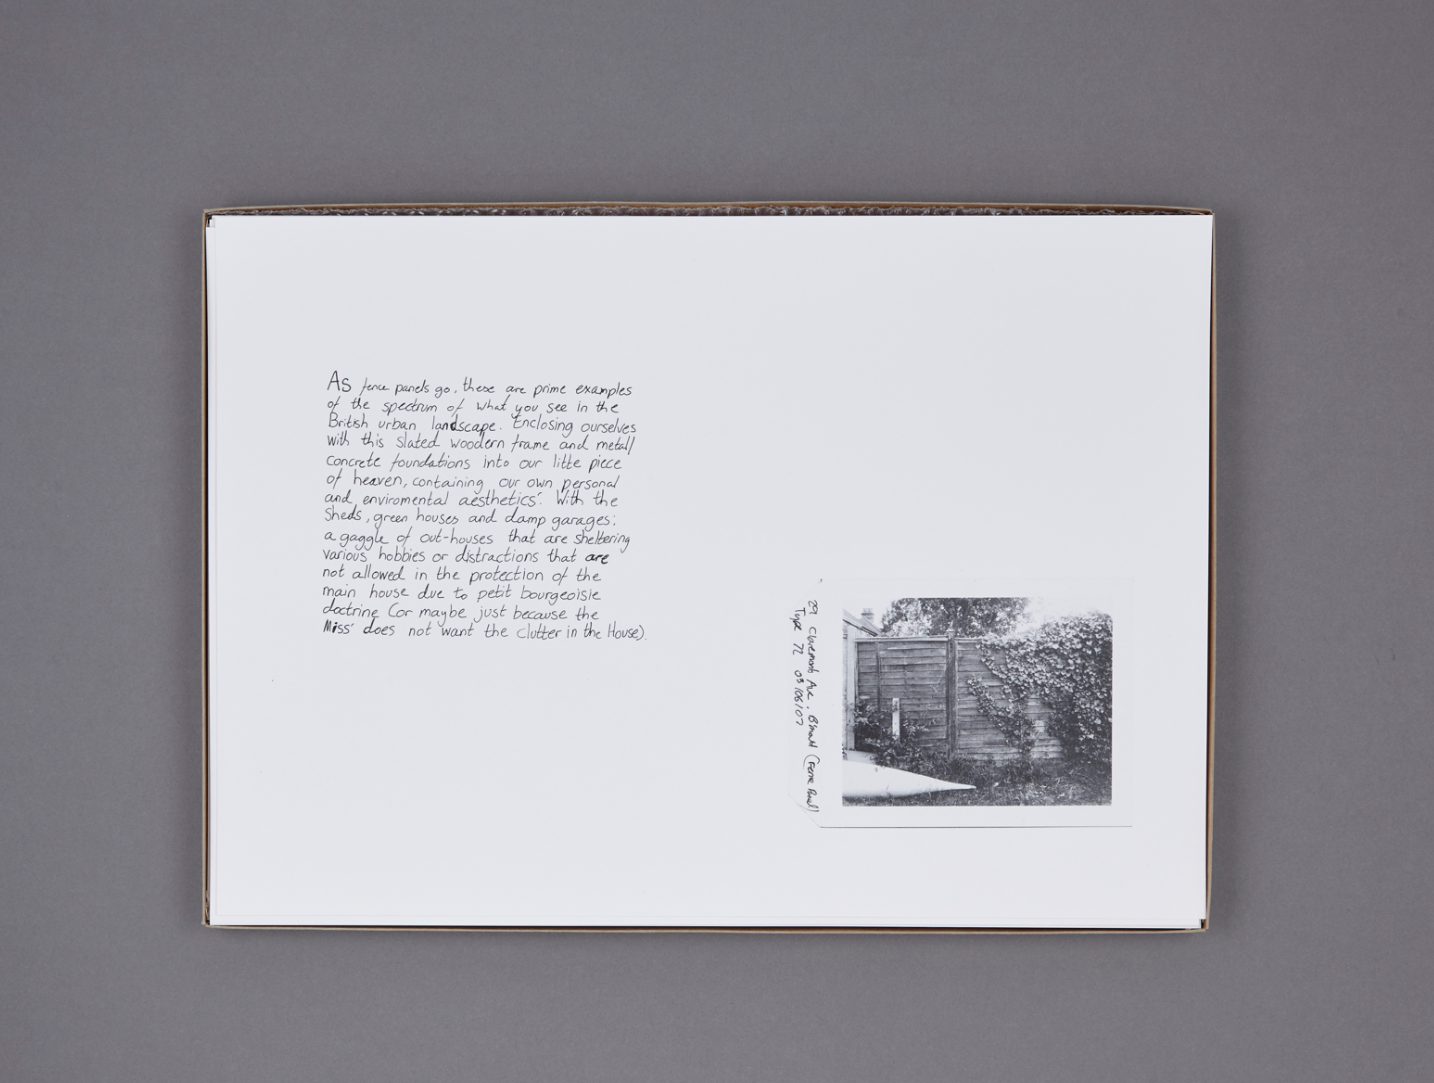 As fence panels go, these are prime examples
of the spectrum of what you see in the
British urban landscape. Enclosing ourselves
with this slated woodern frame and metal/
concrete foundations into our little piece
of heaven, containing our own personal
and enviromental aesthetics'. With the
Sheds, green houses and damp garages;
a gaggle of out-houses that are sheltering
various hobbies or distractions that are
not allowed in the protection of the
main house due to petit bourgeoisie
doctrine (or maybe just because the
Miss' does not want the clutter in the House).
29 Ave. (Fence Panel)
Type 72 03/06/07